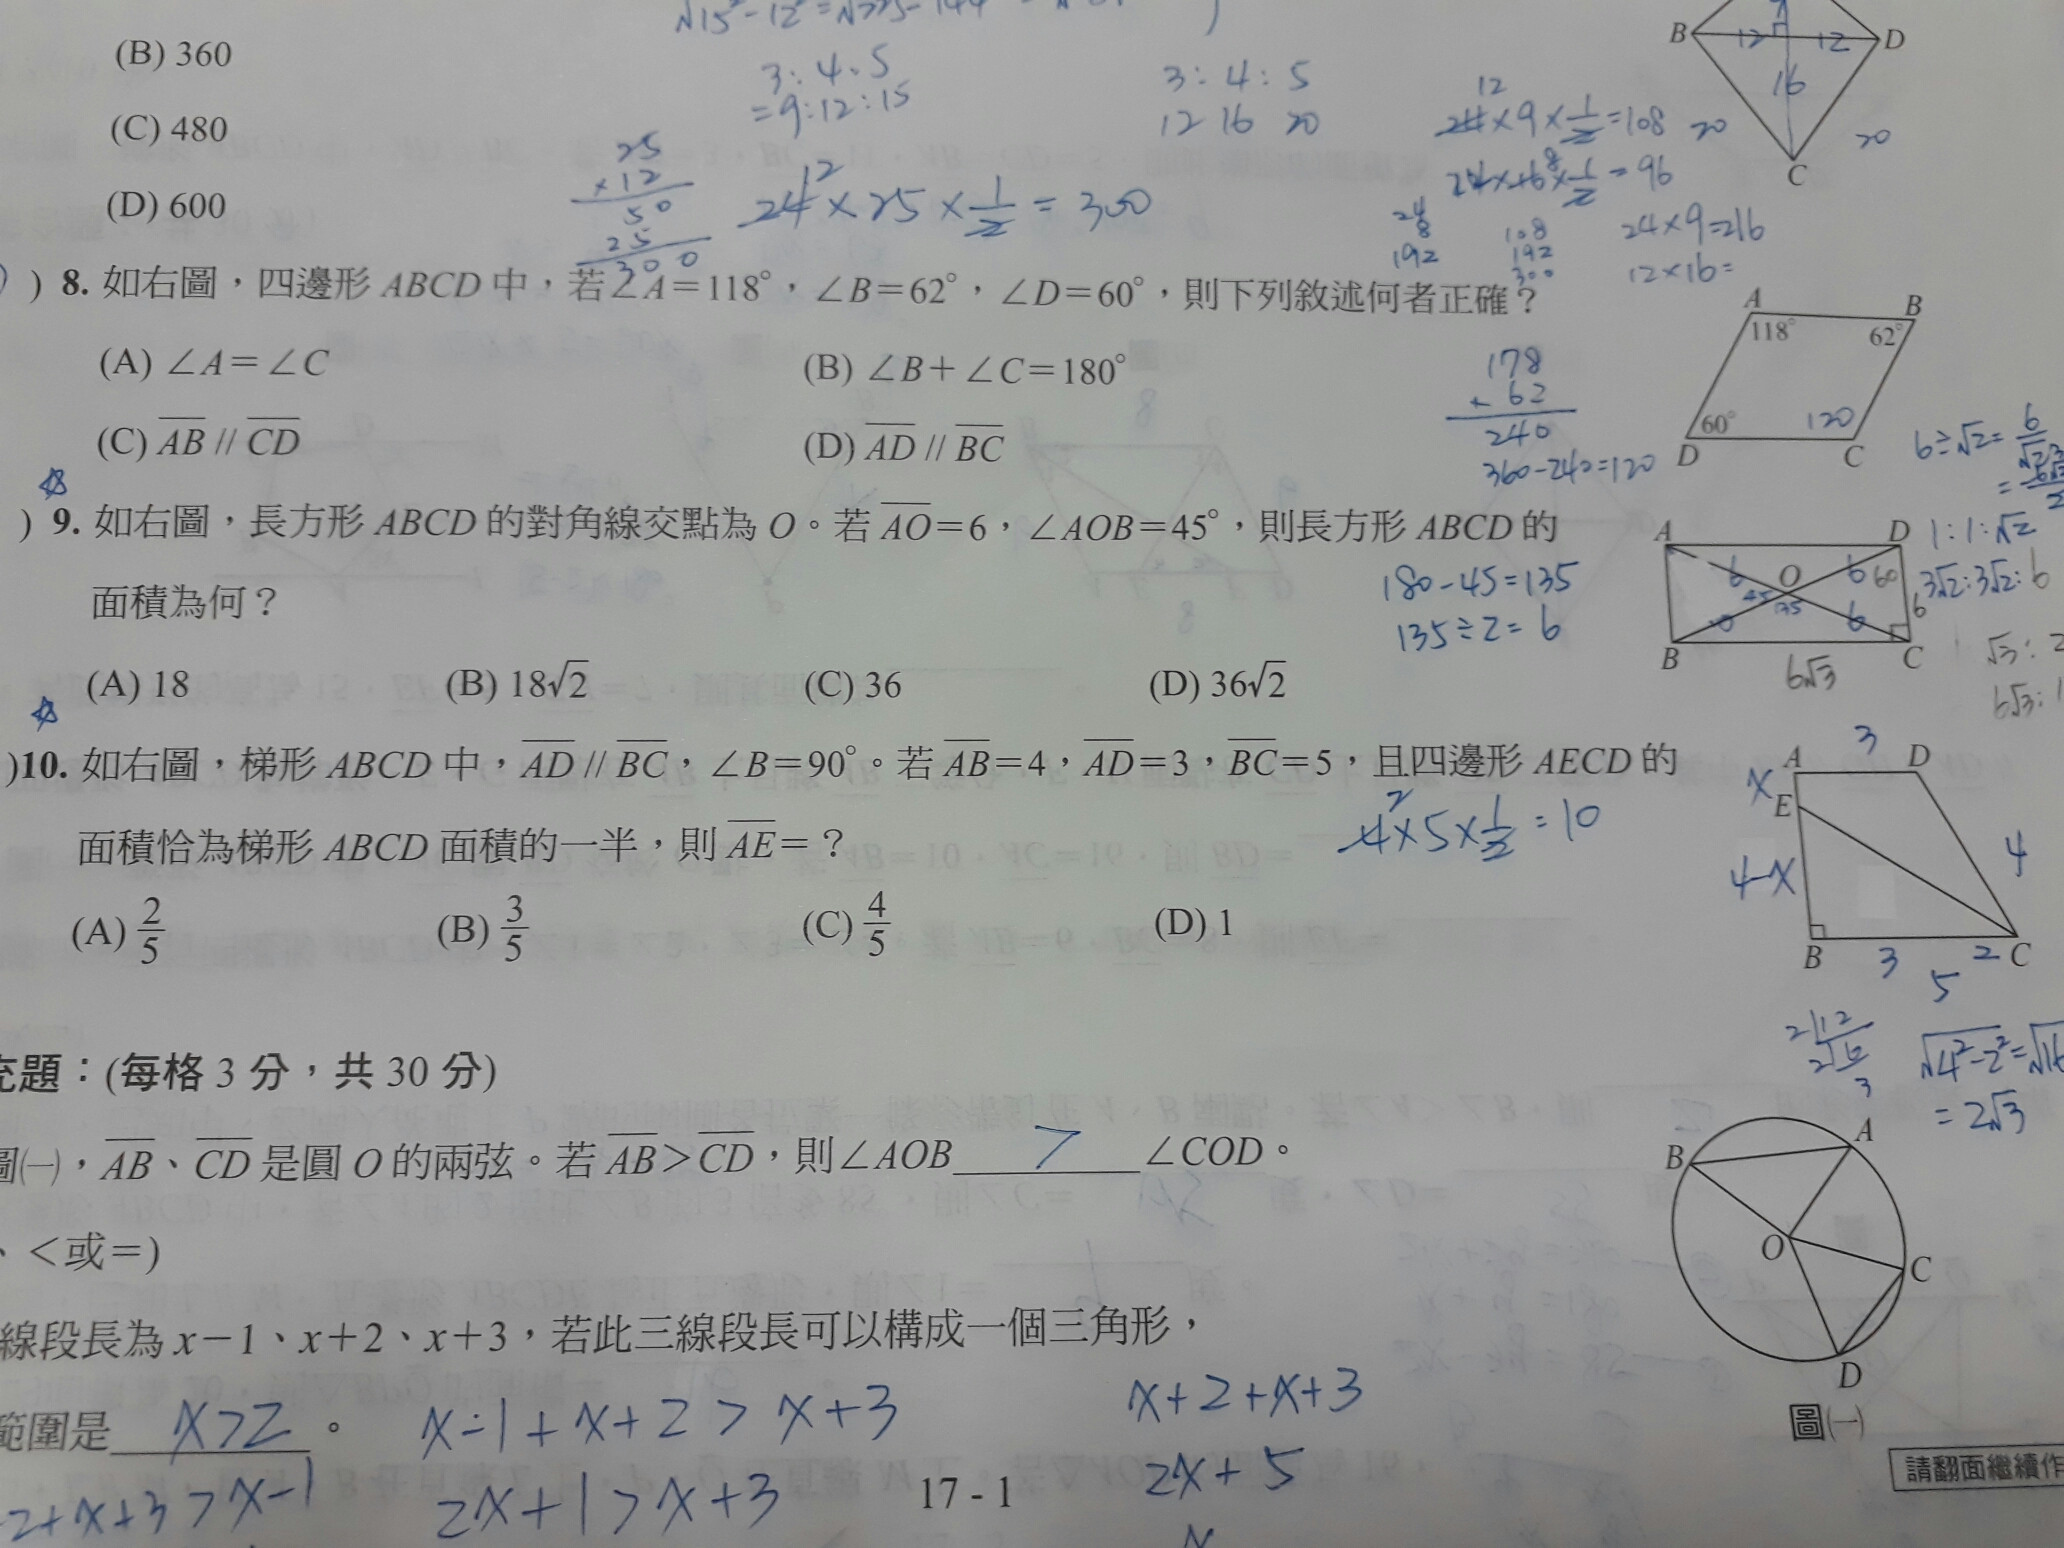 √15²-12²=√225-144
(B) 360
3:4:5
=9:12:15
3:4:5
12 16 20
(C) 480
25
×12
50
25
300
24×25×1/2=300
(D) 600
24×9×1/2=108
24×16×1/2=96
24
8
192
108
192
300
24×9=216
12×16=
B 12 12 D
16
20 20
C
) 8. 如右圖，四邊形 ABCD 中，若∠A=118°，∠B=62°，∠D=60°，則下列敘述何者正確？
(A) ∠A=∠C
(B) ∠B+∠C=180°
(C) AB // CD
(D) AD // BC
178
+ 62
240
360-240=120
A B
118° 62°
60° 120
D C
6÷√2=6/√2
) 9. 如右圖，長方形 ABCD 的對角線交點為 O。若 AO=6，∠AOB=45°，則長方形 ABCD 的
面積為何？
180-45=135
135÷2=6
A D
6 O 6 60
45 135
6 6
B C
6√3
1:1:√2
3√2:3√2:6
(A) 18
(B) 18√2
(C) 36
(D) 36√2
)10. 如右圖，梯形 ABCD 中，AD // BC，∠B=90°。若 AB=4，AD=3，BC=5，且四邊形 AECD 的
面積恰為梯形 ABCD 面積的一半，則 AE=？
4×5×1/2=10
3
A D
x E
4-x 4
B 3 2 C
5
(A) 2/5
(B) 3/5
(C) 4/5
(D) 1
2|12
2|6
3
√4²-2²=√16
=2√3
充題：(每格 3 分，共 30 分)
圖㈠，AB、CD 是圓 O 的兩弦。若 AB>CD，則∠AOB > ∠COD。
、<或=)
A
B
O
C
D
圖㈠
線段長為 x-1、x+2、x+3，若此三線段長可以構成一個三角形，
範圍是 x>2 。
x-1+x+2>x+3
x+2+x+3
2+x+3>x-1
2x+1>x+3
2x+5
17 - 1
請翻面繼續作